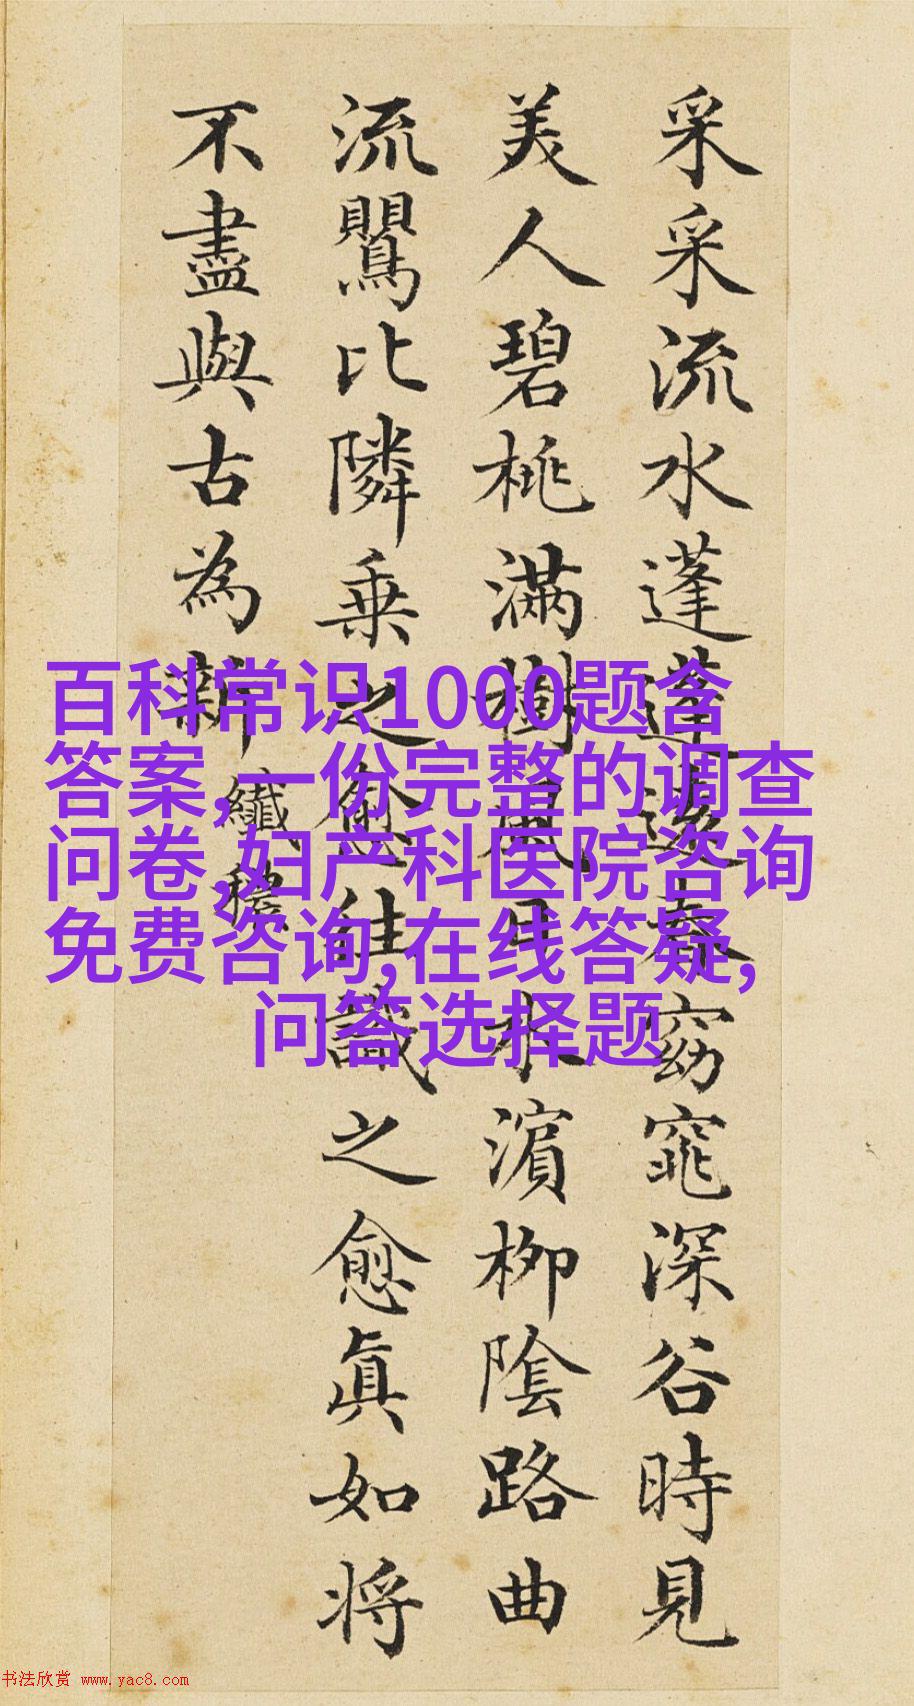 采采流水蓬蓬遠春窈窕深谷時見
美人碧桃滿樹風日水濵柳陰路曲
流鸎比隣乗之愈往識之愈眞如将
不盡與古為新 纖穠
百科常识1000题含
答案,一份完整的调查
问卷,妇产科医院咨询
免费咨询,在线答疑,
问答选择题
书法欣赏 www.yac8.com